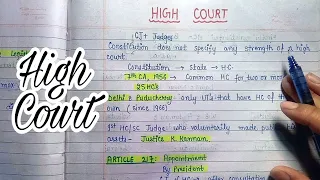 HIGH COURT
CJ + Judges
Constitution does not specify any strength of a high
court.
Constitution → State → HC
7th CA, 1956 → Common HC for two or mo
25 HC's
Delhi & Puducherry only UT's that have HC of th
own. (since 1966)
1st HC/SC Judge who voluntarily made pub
assets - Justice K. Kannan
ARTICLE 217: Appointment
By President
HC after consultation
High
Court